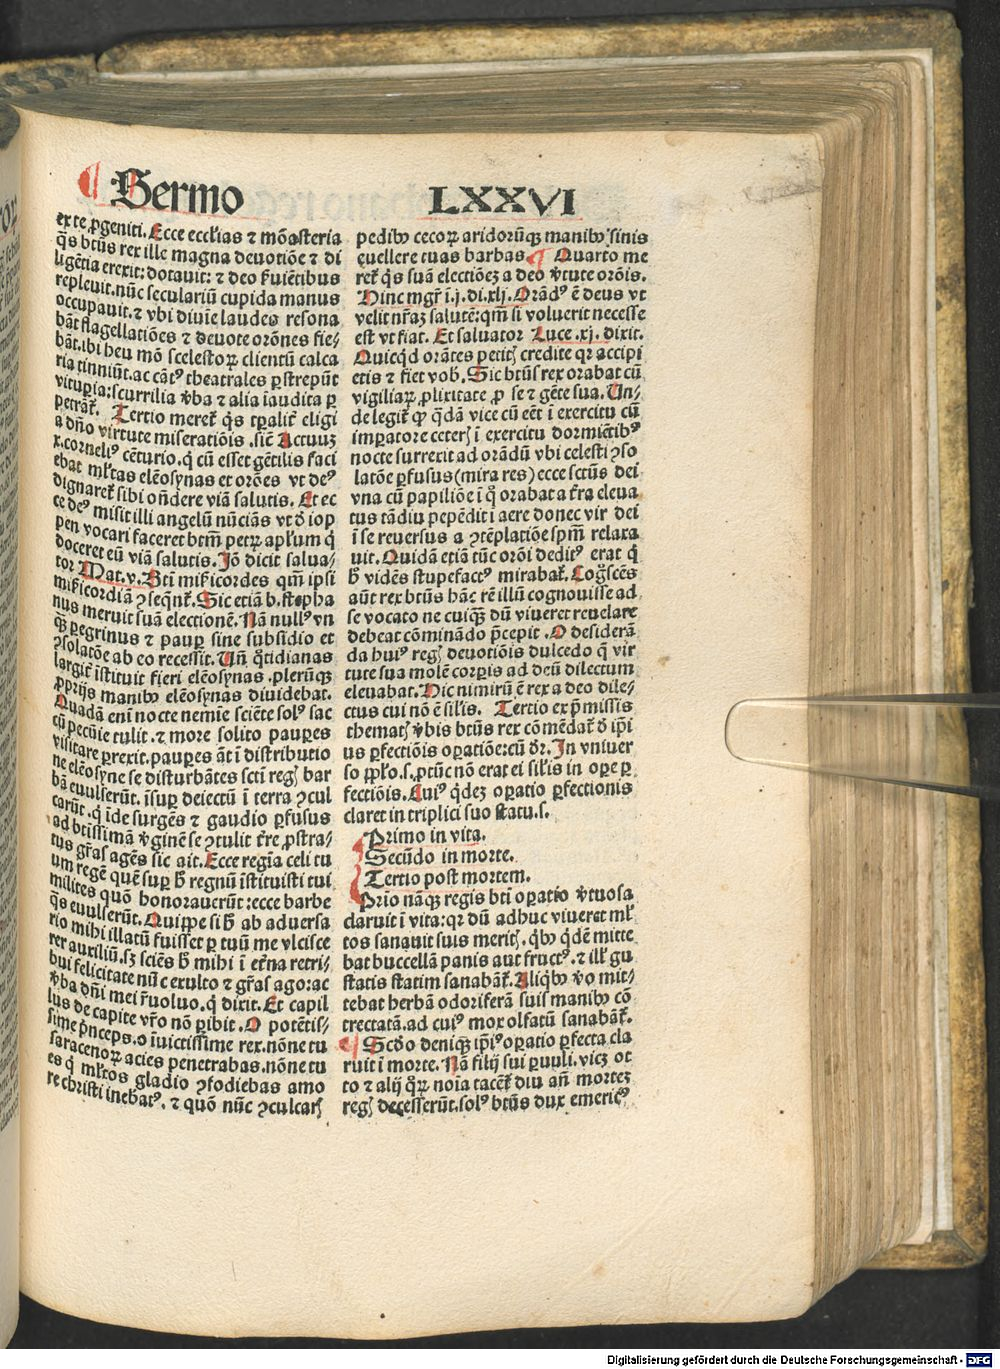 Sermo LXXVI
ex te ꝓgeniti. Ecce ecclias ⁊ mōasteria
q̄s btūs rex ille magna deuotiōe ⁊ di
ligētia erexit: dotauit: ⁊ deo ẜuiētibus
repleuit. nūc seculariū cupida manus
occupauit. ⁊ vbi diuīe laudes resona
bāt flagellatiōes ⁊ deuote orōnes fie-
bāt. ibi heu mō scelestoꝝ clientū calca
ria tinniūt. ac cātꝰ theatrales ꝑstrepūt
vituꝑia: scurrilia v̄ba ⁊ alia īaudita ꝑ
petrāt᷑. Tertio meret᷑ q̄s tꝑalit᷑ eligi
a dn̄o virtute miseratiōis. sic̄ Actuuꝫ
x. corneliꝰ cēturio. q̇ cū esset gētilis faci
ebat ml̄tas elēosynas et orōes vt deꝰ
dignaret᷑ sibi on̄dere viā salutis. Et ec
ce deꝰ misit illi angelū nūciās vt d̄ iop
pen vocari faceret btm̄ petꝝ apl̄um q̇
doceret eū viā salutis. Jō dicit salua-
tor Mat. v. Bti mīẜicordes qm̄ ipsi
mīẜicordiā ꝯseqn̄t᷑. Sic etiā b. stepha
nus meruit suā electionē. Nā nullꝰ vn
qꝫ ꝑegrinus ⁊ paup̄ sine subsidio et
ꝯsolatōe ab eo recessit. Un̄ q̊tidianas
largit᷑ īstituit fieri elēosynas. pleruꝫqꝫ
ꝓprijs manibꝰ elēosynas diuidebat.
Quadā enī nocte nemīe sciēte solꝰ sac
cū pecūie tulit. ⁊ more solito pauꝑes
visitare ꝑrexit. pauꝑes āt ī distributio
ne elēosyne se disturbātes scti regꝭ bar
bā euulserūt. īsuꝑ deiectū ī terra ꝯcul
carūt. q̇ īde surgēs ⁊ gaudio ꝑfusus
ad btissimā v̄ginē se ꝯtulit t̄re ꝓstra-
tus gr̄as agēs sic ait. Ecce regīa celi tu
um regē quē suꝑ b̄ regnū īstituisti tui
milites quō honorauerūt: ecce barbe
q̄s euulserūt. Quippe si b̄ ab aduersa
rio mihi illatū fuisset ꝑ tuū me vlcisce
rer auxiliū. sꝫ sciēs b̄ mihi ī et̄na retri-
bui felicitate nūc exulto ⁊ gr̄as ago: ac
v̄ba dn̄i mei r̄uoluo. q̇ dixit. Et capil
lus de capite vr̄o nō ꝑibit. O potētis-
sime pn̄ceps. o īuictissime rex. nōne tu
saracenoꝝ acies penetrabas. nōne tu
es q̇ ml̄tos gladio ꝯfodiebas amo
re christi inebatꝰ. ⁊ quō nūc ꝯculcarꝭ
pedibꝰ cecoꝝ aridorūqꝫ manibꝰ sinis
euellere tuas barbas. Quarto me
ret᷑ q̄s suā electiōeꝫ a deo v̄tute orōis.
Hinc mgr̄ ī. j. di. xlj. Orādꝰ ē deus vt
velit nr̄aꝫ salutē: qm̄ si voluerit necesse
est vt fiat. Et saluator Luce. xj. dixit.
Quicqd orātes petitꝭ credite qr accipi
etis ⁊ fiet vob̄. Sic btūs rex orabat cū
vigiliaꝝ ꝓlixitate ꝓ se ⁊ gēte sua. Un-
de legit᷑ ꝙ q̄dā vice cū eēt ī exercitu cū
imꝑatore ceterꝭ ī exercitu dormiētibꝰ
nocte surrexit ad orādū vbi celesti ꝯso
latōe ꝑfusus (mira res) ecce sctūs dei
vna cū papiliōe ī q̊ orabat a t̄ra eleua
tus tādiu pepēdit ī aere donec vir dei
ī se reuersus a ꝯtēplatiōe spm̄ relaxa
uit. Quidā etiā tūc orōi deditꝰ erat q̇
b̄ vidēs stupefactꝰ mirabat᷑. Cog̊scēs
aūt rex btūs hāc rē illū cognouisse ad
se vocato ne cuiqꝫ dū viueret reuelare
debeat cōminādo p̄cepit. O desiderā
da huiꝰ regꝭ deuotiōis dulcedo q̄ vir
tute sua molē corꝑis ad deū dilectum
eleuabat. Hic nimirū ē rex a deo dile-
ctus cui nō ē sil̄is. Tertio ex p̄missis
thematꝭ v̄bis btūs rex cōmēdat᷑ d̄ ip̄i
us ꝑfectiōis oꝑatiōe: cū dr̄. Jn vniuer
so ppl̄o. s. ꝓtūc nō erat ei sil̄is in oꝑe ꝑ
fectiōis. Cuiꝰ q̇deꝫ oꝑatio ꝑfectionis
claret in triplici suo statu. s.
Primo in vita.
Secūdo in morte.
Tertio post mortem.
Prīo nāqꝫ regis bti oꝑatio v̄tuosa
claruit ī vita: qr dū adhuc viueret ml̄
tos sanauit suis meritꝭ. qbꝰ q̇dē mitte
bat buccellā panis aut fructꝰ. ⁊ ill̄ gu
statis statim sanabāt᷑. Aliqbꝰ v̄o mit-
tebat herbā odoriferā suis manibꝰ cō
trectatā. ad cuiꝰ mox olfatū sanabāt᷑.
Scd̄o deniqꝫ ip̄iꝰ oꝑatio ꝑfecta cla
ruit ī morte. Nā filij sui ꝑuuli. vicꝫ ot
to ⁊ alij q̊ꝝ noīa tacēt᷑ diu an̄ morteꝫ
regꝭ decesserūt. solꝰ btūs dux emericꝰ
Digitalisierung gefördert durch die Deutsche Forschungsgemeinschaft - DFG